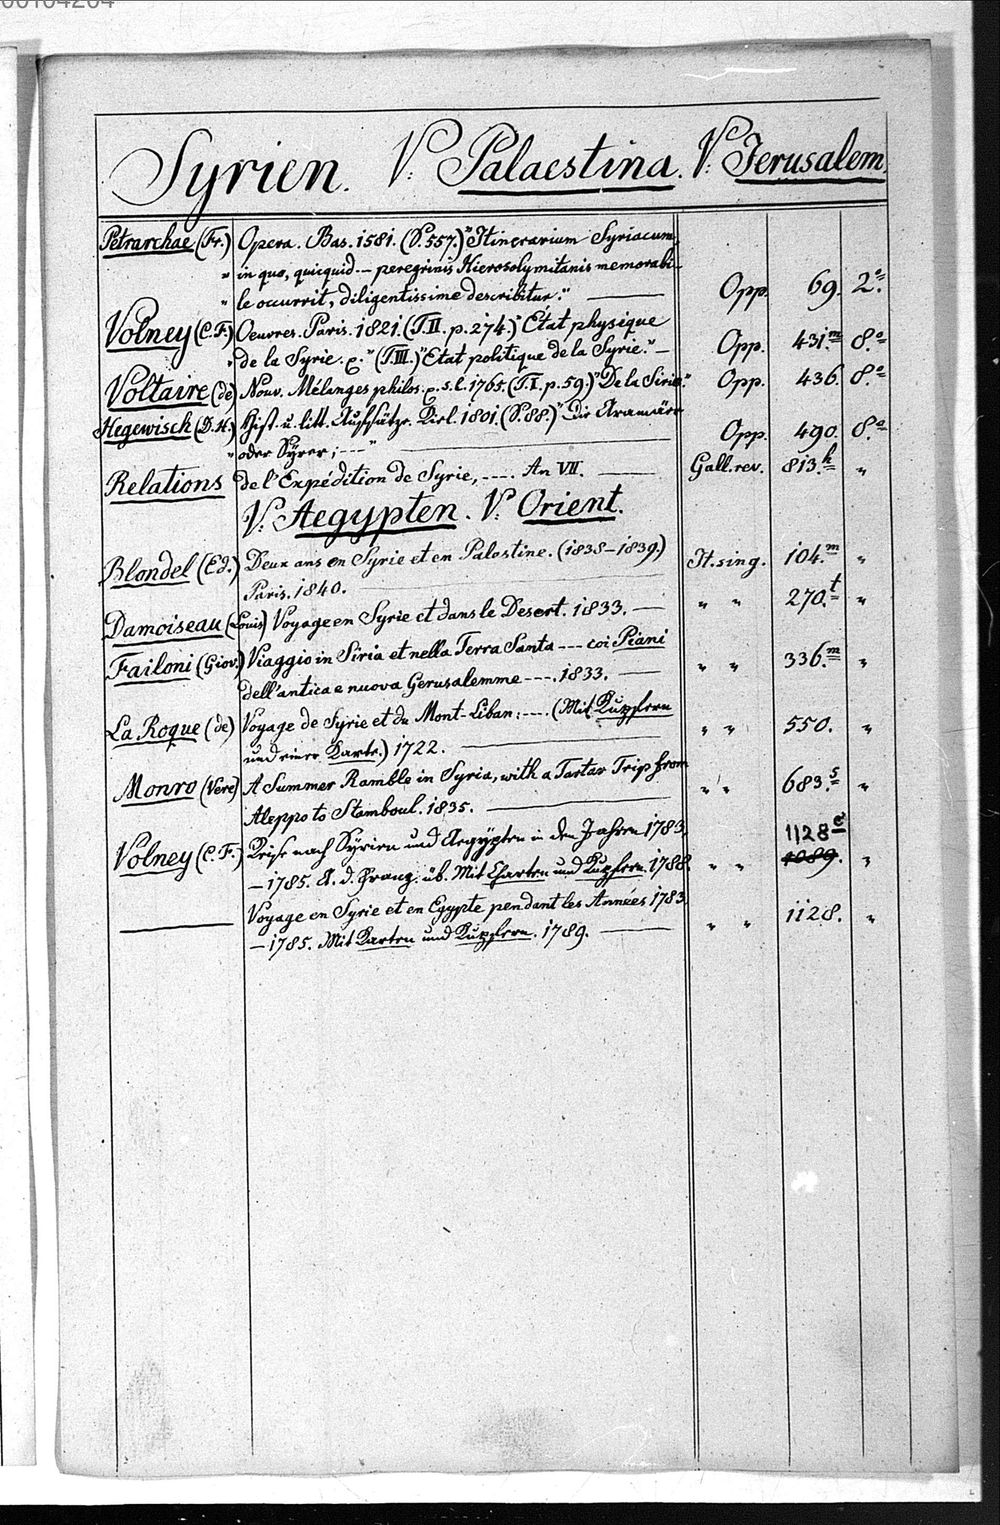 Syrien. V: Palaestina. V: Jerusalem.
Petrarchae (Fr.) Opera. Bas. 1581. (S. 557.) "Itinerarium Syriacum,
" in quo, quicquid --- peregrinis Hierosolymitanis memorabi-
" le occurrit, diligentissime describitur." — Opp. 69. 2.º
Volney (C. F.) Oeuvres. Paris. 1821. (T. II. p. 274.) "Etat physique
" de la Syrie. &." (T. III.) "Etat politique de la Syrie." — Opp. 431.m 8.º
Voltaire (de) Nouv. Mélanges philos. &. s. l. 1765. (T. I. p. 59.) "De la Sirie." Opp. 436. 8.º
Hegewisch (D. H.) Hist. u. litt. Aufsätze. Kiel. 1801. (S. 88.) "Die Aramäer
" oder Syrer; --- " — Opp. 490. 8.º
Relations de l'Expédition de Syrie, ---- An VII. — Gall. rev. 813.k "
V: Aegypten. V: Orient.
Blondel (Ed.) Deux ans en Syrie et en Palestine. (1838–1839.) It. sing. 104.m "
Paris. 1840. —
Damoiseau (Louis) Voyage en Syrie et dans le Desert. 1833. — " " 270.t "
Failoni (Giov.) Viaggio in Siria et nella Terra Santa --- coi Piani " " 336.m "
dell'antica e nuova Gerusalemme ---. 1833. —
La Roque (de) Voyage de Syrie et du Mont-Liban: ---. (Mit Kupfern " " 550. "
und einer Karte.) 1722. —
Monro (Vere) A Summer Ramble in Syria, with a Tartar Trip from " " 683.s "
Aleppo to Stamboul. 1835. —
Volney (C. F.) Reise nach Syrien und Aegypten in den Jahren 1783. 1128e
– 1785. A. d. Franz. üb. Mit Charten und Kupfern. 1788. " " 1089. "
— Voyage en Syrie et en Egypte pendant les Années 1783 " " 1128. "
– 1785. Mit Karten und Kupfern. 1789. —